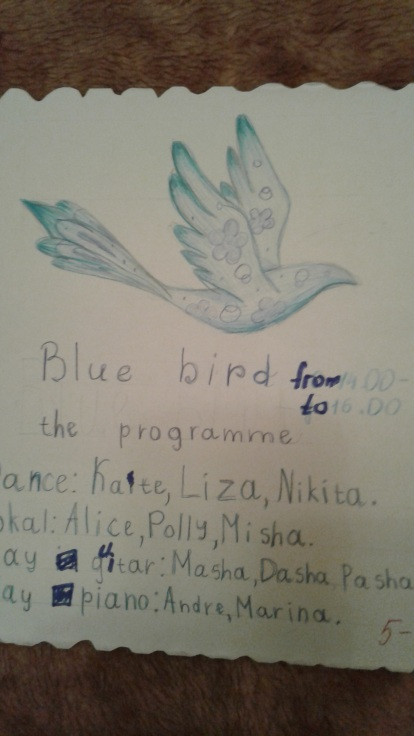 Blue bird from 14.00-
to 16.00
the programme
ance: Kaite, Liza, Nikita.
okal: Alice, Polly, Misha.
ay gitar: Masha, Dasha Pasha
ay piano: Andre, Marina.
5-